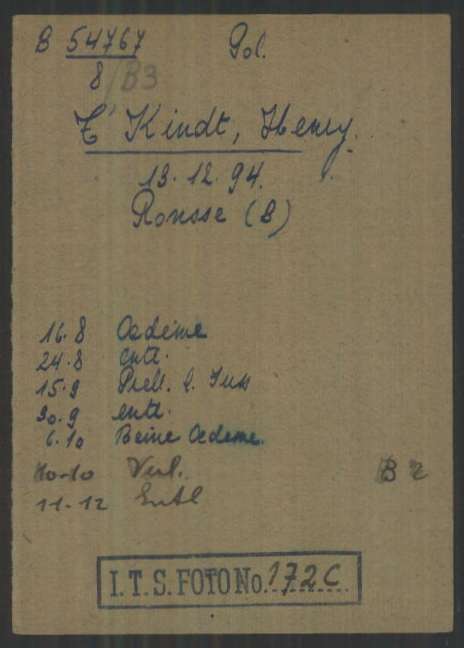 B 54767 Pol.
8/B3
T'Kindt, Henry.
13.12.94.
Ronsse (B)
16.8 Oedeme
24.8 entl.
15.9 l. Fuss
30.9 entl.
6.10 Beine Oedeme.
10-10 Verl. B 2
11-12 Entl
I.T.S. FOTO No. 172C